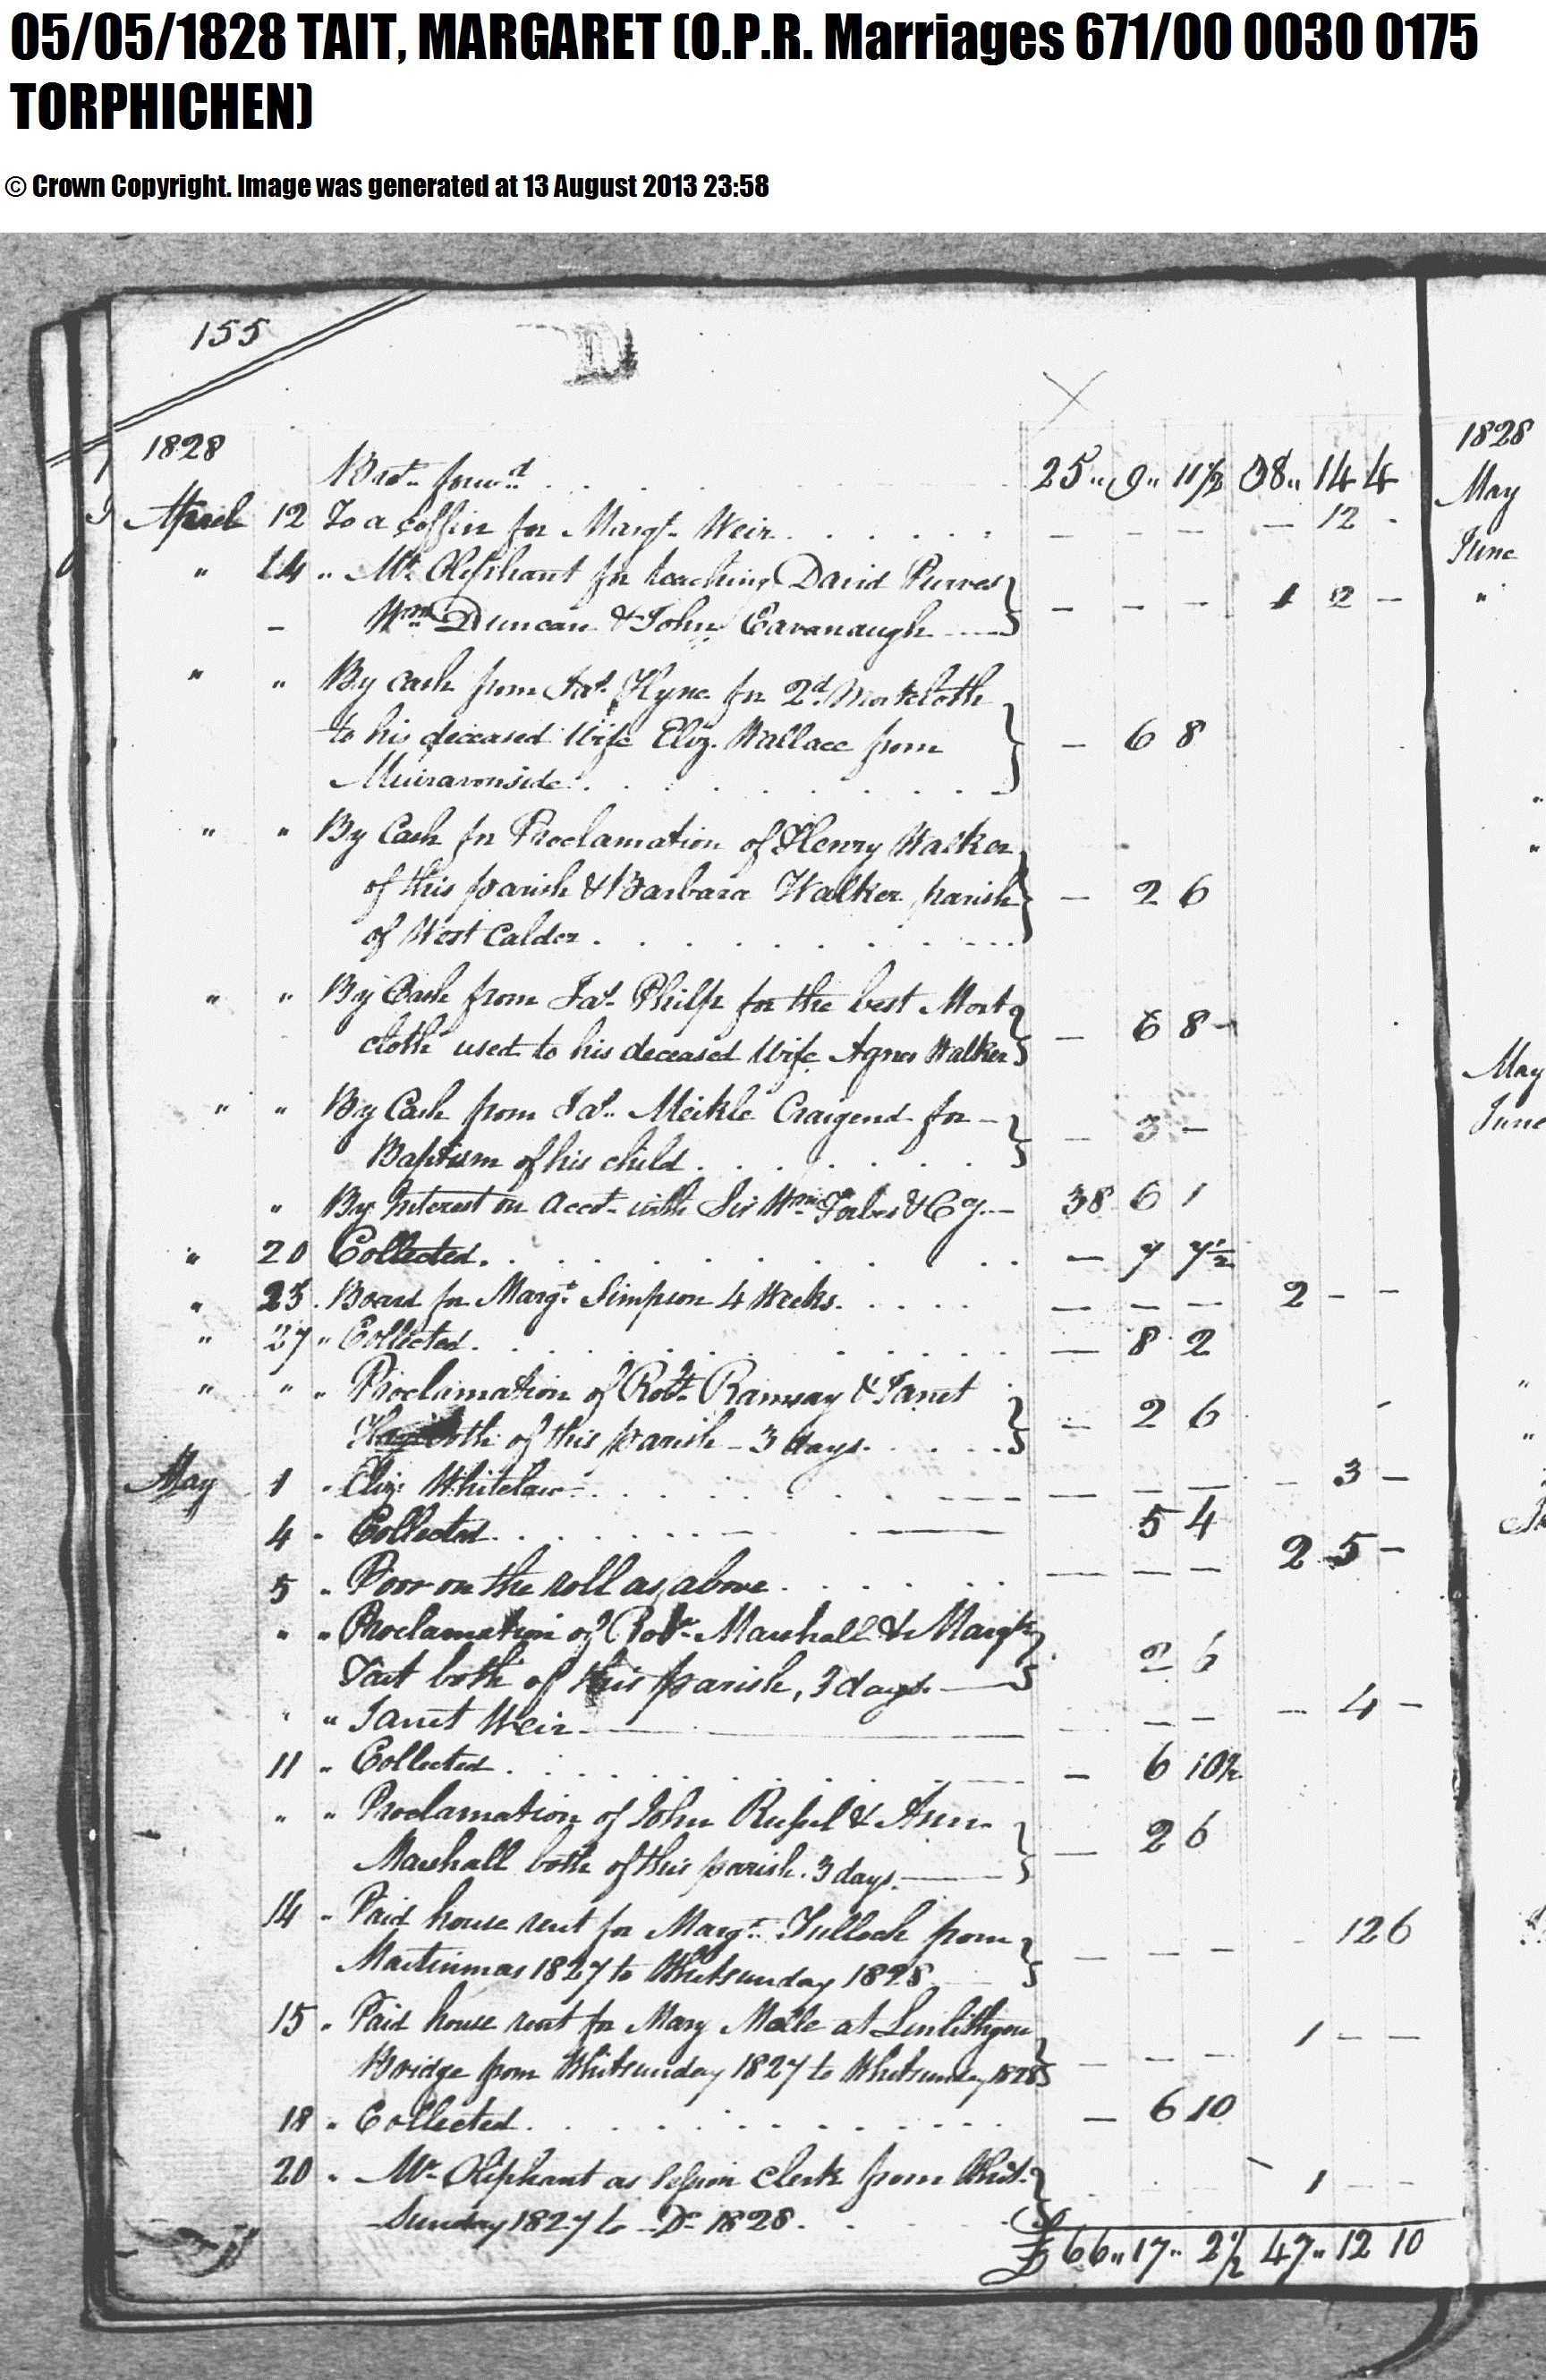 05/05/1828 TAIT, MARGARET (O.P.R. Marriages 671/00 0030 0175
TORPHICHEN)
© Crown Copyright. Image was generated at 13 August 2013 23:58
155
1828
Brot. forwd. 25 " 9 " 11 1/2 38 " 14 4
April 12 To a coffin for Margt. Weir - - - - 12 -
" 14 " Mr. Oliphant for teaching David Purves
- Wm. Duncan & John Cavanaugh - - - 1 2 -
" " By cash from Jas. Flyne for 2d. Mortcloth
to his deceased Wife Eliz. Wallace from - 6 8
Muiravonside
" " By Cash for Proclamation of Henry Walker
of this parish & Barbara Walker parish - 2 6
of West Calder
" " By Cash from Jas. Philp for the best Mort
cloth used to his deceased Wife Agnes Walker - 6 8 -
" " By Cash from Jas. Meikle Craigend for -
Baptism of his child - 3 -
" By Interest on Acct. with Sir Wm. Forbes & Cy. 38 6 1
" 20 Collected - 7 7 1/2
" 25 Board for Margt. Simpson 4 Weeks - - - 2 - -
" 27 " Collected - 8 2
" " " Proclamation of Robt. Ramsay & Janet
both of this parish - 3 days - 2 6
May 1 " Eliz. Whitelaw - - - - 3 -
4 " Collected 5 4
5 " Poor on the roll as above - - - 2 5 -
" " Proclamation of Robt. Marshall & Margt.
Tait both of this parish, 3 days 2 6
" " Janet Weir - - - - 4 -
11 " Collected - 6 10 1/2
" " Proclamation of John Russel & Ann
Marshall both of this parish. 3 days - 2 6
14 " Paid house rent for Margt. Tulloch from
Martinmas 1827 to Whitsunday 1828 - - - - 12 6
15 " Paid house rent for Mary Meikle at Linlithgow
Bridge from Whitsunday 1827 to Whitsunday 1828 - - - 1 - -
18 " Collected - 6 10
20 " Mr. Oliphant as Session Clerk from Whit.
Sunday 1827 to Do. 1828 1 - -
£ 66 " 17 " 2 1/2 47 " 12 10
1828
May
June
"
May
June